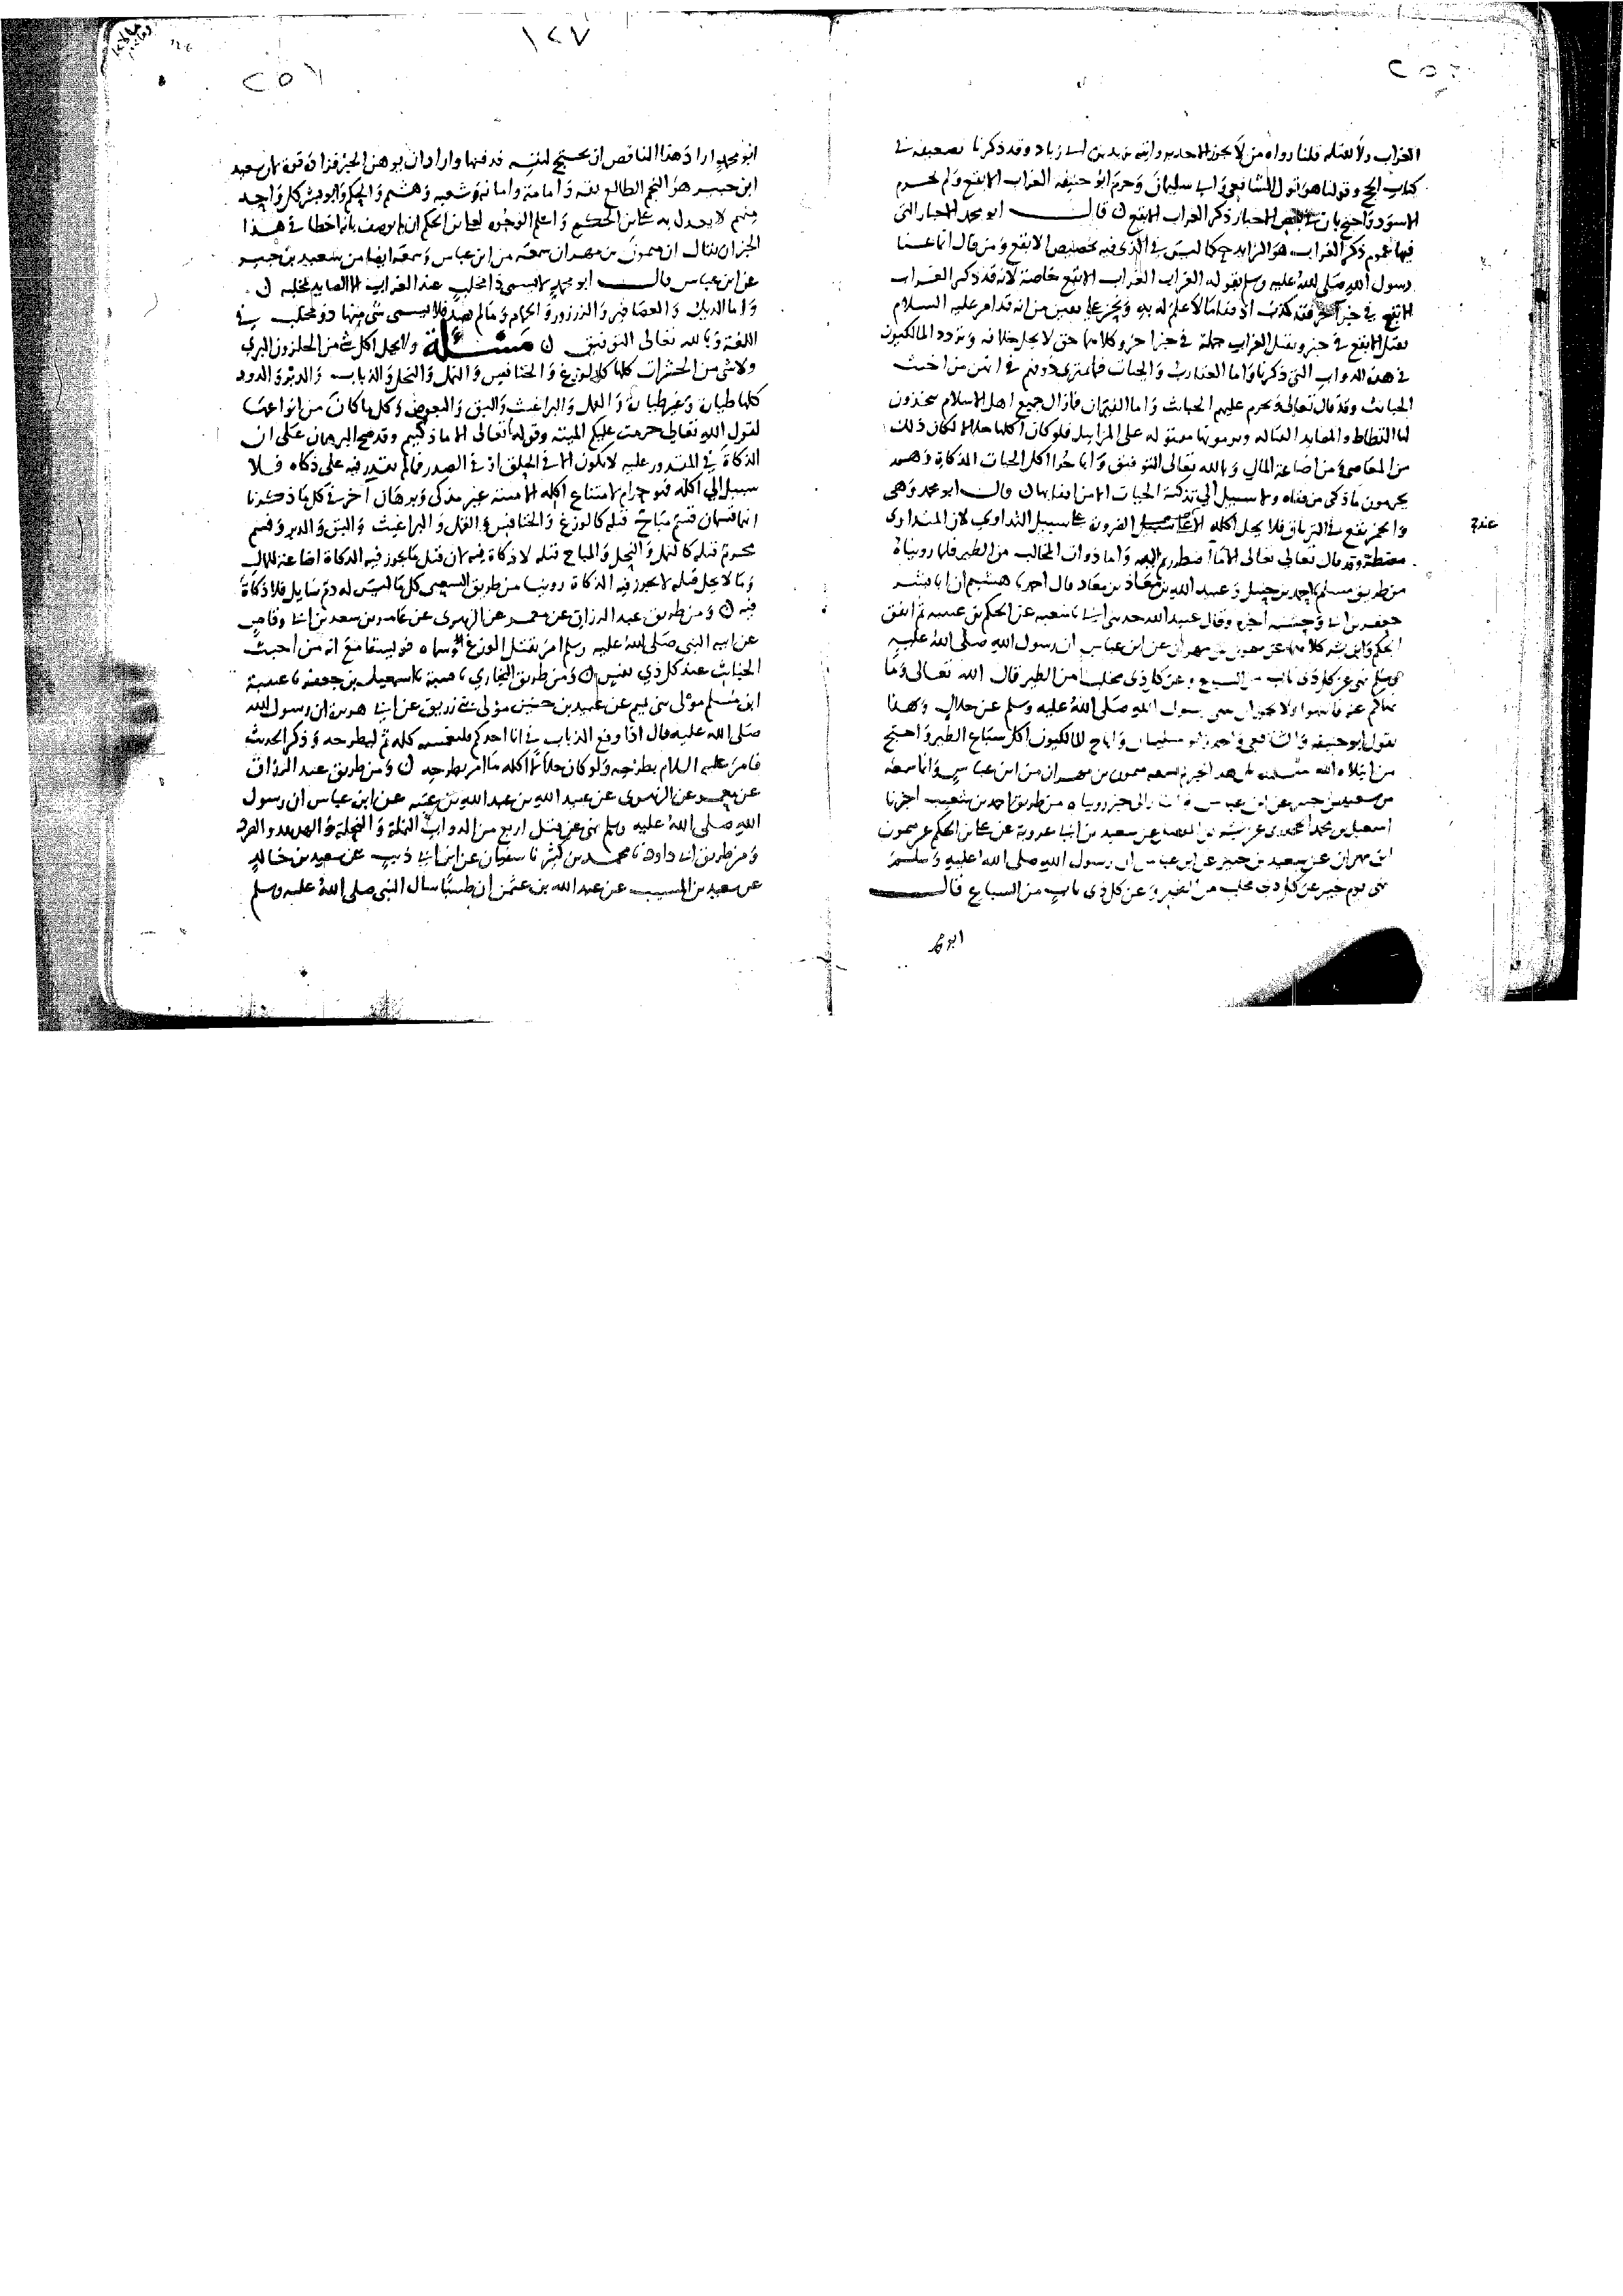 ١٢٧
٢٥٦
الغراب ولا يقتله قلنا رواه من لا يجوز الاخذ بروايته يزيد بن ابى زياد وقد ذكرنا تضعيفه فى
كتاب الحج وقولنا هو قول الشافعى وابى سليمان وحرم ابو حنيفه الغراب الابقع ولم يحرم
الاسود واحتج بان فى بعض الاخبار ذكر الغراب الابقع قال ابو محمد الاخبار التى
فيها عموم ذكر الغراب هو الزايد حكما ليس فى الذى فيه تخصيص الابقع ومن قال انما عنا
رسول الله صلى الله عليه وسلم بقوله الغراب الغراب الابقع خاصة لانه قد ذكر الغراب
الابقع فى خبر اخر فقد كذب اذ قفا ما لا علم له به ونحن على يقين من انه قد امر عليه السلام
بقتل الابقع فى خبر وبقتل الغراب جملة فى خبر اخر وكلاهما حق لا يحل خلافه وتردد المالكيون
فى هذه الدواب التى ذكرنا واما العقارب والحيات فما يمترى ذو فهم فى انهن من اخبث
الخبائث وقد قال تعالى ويحرم عليهم الخبائث واما الفيران فما زال جميع اهل الاسلام يتخذون
لها القطاط والمصايد القتاله ويرمونها مقتوله على المزابل فلو كان اكلها حلالا لكان ذلك
من المعاصى ومن اضاعة المال وبالله تعالى التوفيق واباحوا اكل الحيات المذكاة وهم
يحرمون ما ذكى من قفاه ولا سبيل الى تذكية الحيات الا من اقفايها قال ابو محمد وهى
والخمر تقع فى الترياق فلا يحل اكله الا عند الضرورة على سبيل التداوى لان المتداوى
عند
مضطر وقد قال تعالى الا ما اضطررتم اليه واما ذوات المخالب من الطير فلما رويناه
من طريق مسلم نا احمد بن حنبل وعبيد الله بن معاذ بن معاذ قال احمد نا هشيم ان ابا بشر
جعفر بن ابى وحشيه اخبره وقال عبيد الله حدثنى ابى نا شعبه عن الحكم بن عتيبه ثم اتفق
الحكم وابو بشر كلاهما عن ميمون بن مهران عن ابن عباس ان رسول الله صلى الله عليه
وسلم نهى عن كل ذى ناب من السباع وعن كل ذى مخلب من الطير قال الله تعالى وما
نهاكم عنه فانتهوا ولا يجوز ان ينهى رسول الله صلى الله عليه وسلم عن حلال وبهذا
يقول ابو حنيفه والشافعى واحمد وابو سليمان واباح المالكيون اكل سباع الطير واحتج
من ابتلاه الله بان هذا الخبر لم يسمعه ميمون بن مهران من ابن عباس وانما سمعه
من سعيد بن جبير عن ابن عباس الى خبر رويناه من طريق احمد بن شعيب اخبرنا
اسمعيل بن عن بشر بن المفضل عن سعيد بن ابى عروبة عن على بن الحكم عن ميمون
ابن مهران عن سعيد بن جبير عن ابن عباس ان رسول الله صلى الله عليه وسلم
نهى يوم خيبر عن كل ذى مخلب من الطير وعن كل ذى ناب من السباع قال
ابو محمد
٢٥٧
ابو محمد اراد هذا الناقص ان يحتج لنفسه فدفنها واراد ان يوهن الخبر فزاده قوة لان سعيد
ابن جبير هو النجم الطالع ثقه وامامة وامانه وشعبه وهشيم والحكم وابو بشر كل واحد
منهم لا يعدل به على بن الحكم واسلم الوجوه لعلى بن الحكم ان لم يوصف بانه اخطا فى هذا
الخبر ان يقال ان ميمون بن مهران سمعه من ابن عباس وسمعه ايضا من سعيد بن جبير
عن ابن عباس قال ابو محمد لا يسمى ذا مخلب عند العرب الا الصايد بمخلبه
واما الديك والعصافير والزرزور والحمام وما لم يصد فلا يسمى شى منها ذو مخلب فى
اللغة وبالله تعالى التوفيق مسئلة ولا يحل اكل شى من الحلزون البرى
ولا شى من الحشرات كلها كالوزغ والخنافس والنمل والنحل والذباب والدبر والدود
كله طيارة وغير طيارة والقمل والبراغيث والبق والبعوض وكل ما كان من انواعها
لقول الله تعالى حرمت عليكم الميته وقوله تعالى الا ما ذكيتم وقد صح البرهان على ان
الذكاة فى المقدور عليه لا تكون الا فى الحلق او فى الصدر فما لم يقدر فيه على ذكاه فلا
سبيل الى اكله فهو حرام لامتناع اكله الا ميتة غير مذكى وبرهان اخر فى كل ما ذكرنا
انها قسمان قسم مباح قتله كالوزغ والخنافس والقمل والبراغيث والبق والدبر وقسم
محرم قتله كالنمل والنحل والمباح قتله لا ذكاة فيه لان قتل ما يجوز فيه الذكاة اضاعة للمال
وما لا يحل قتله لا يجوز فيه الذكاة روينا من طريق الشعبى كل ما ليس له دم سايل فلا ذكاة
فيه ومن طريق عبد الرزاق عن معمر عن الزهرى عن عامر بن سعد بن ابى وقاص
عن ابيه النبى صلى الله عليه وسلم امر بقتل الوزغ وسماه فويسقا مع انه من اخبث
الخبائث عند كل ذى نفس ومن طريق البخارى نا قتيبة نا اسمعيل بن جعفر نا عتبة
ابن مسلم مولى بنى تيم عن عبيد بن حنين مولى بنى زريق عن ابى هريرة ان رسول الله
صلى الله عليه قال اذا وقع الذباب فى انا احدكم فليغمسه كله ثم ليطرحه وذكر الحديث
فامر عليه السلام بطرحه ولو كان حلالا اكله ما امر بطرحه ومن طريق عبد الرزاق
عن معمر عن الزهرى عن عبيد الله بن عبد الله بن عتبه عن ابن عباس ان رسول
الله صلى الله عليه وسلم نهى عن قتل اربع من الدواب النملة والنحلة والهدهد والصرد
ومن طريق ابى داود نا محمد بن كثير نا سفيان عن ابن ابى ذيب عن سعيد بن خالد
عن سعيد بن المسيب عن عبد الله بن عثمن ان طبيبا سال النبى صلى الله عليه وسلم